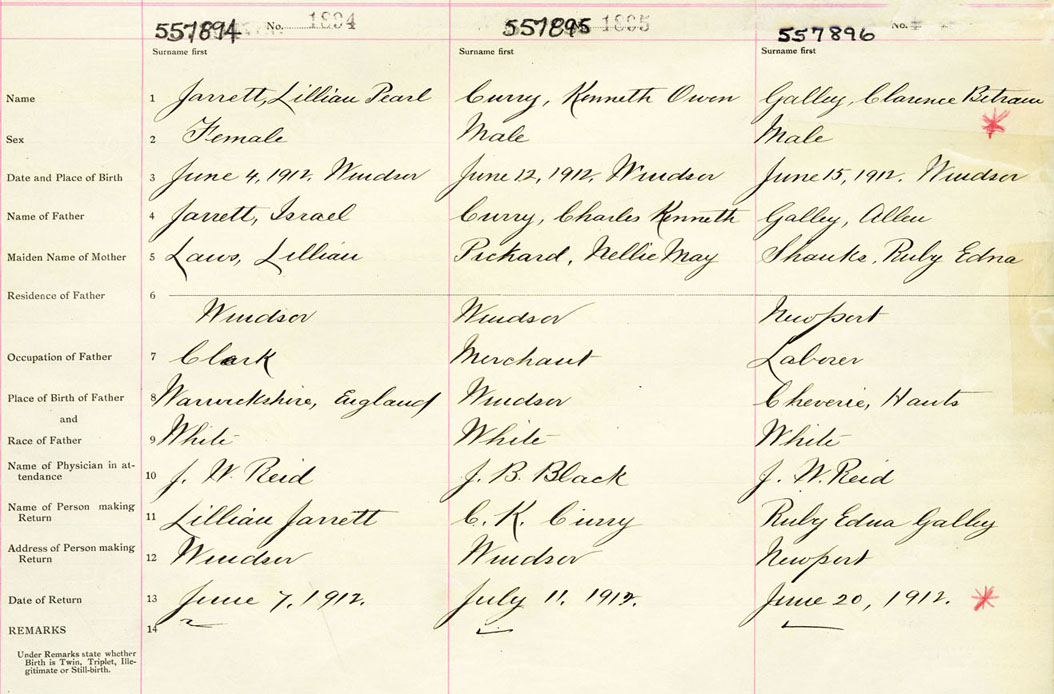 557894 No. 1894 557895 1895 557896 No.
Surname first Surname first Surname first
Name 1 Jarrett, Lillian Pearl Curry, Kenneth Owen Galley, Clarence Betram
Sex 2 Female Male Male
Date and Place of Birth 3 June 4, 1912. Windsor June 12, 1912. Windsor June 15, 1912. Windsor
Name of Father 4 Jarrett, Israel Curry, Charles Kenneth Galley, Allen
Maiden Name of Mother 5 Laws, Lillian Pickard, Nellie May Shanks, Ruby Edna
Residence of Father 6
Windsor Windsor Newport
Occupation of Father 7 Clark Merchant Laborer
Place of Birth of Father 8 Warwickshire, England Windsor Cheverie, Hants
and
Race of Father 9 White White White
Name of Physician in at-
tendance 10 J. W. Reid J. B. Black J. W. Reid
Name of Person making
Return 11 Lillian Jarrett C. K. Curry Ruby Edna Galley
Address of Person making
Return 12 Windsor Windsor Newport
Date of Return 13 June 7, 1912. July 11, 1912. June 20, 1912.
REMARKS 14
Under Remarks state whether
Birth is Twin, Triplet, Ille-
gitimate or Still-birth.